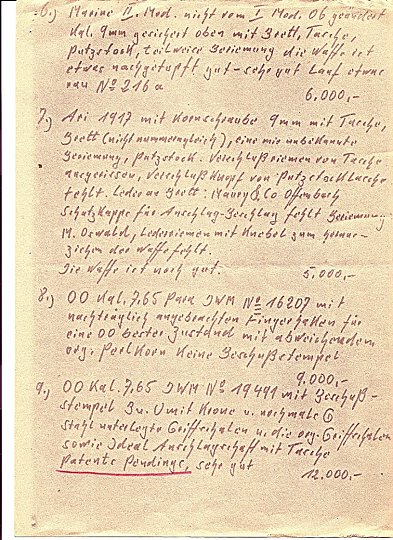 6.) Marine II. Mod. nicht vom I Mod. 06 geändert
Kal. 9mm gesichert oben mit Brett, Tasche,
Putzstock, teilweise Beriemung die Waffe ist
etwas nachgetupft gut - sehr gut Lauf etwas
rau Nº 216 a
6.000,-
7.) Art 1917 mit Kornschraube 9mm mit Tasche,
Brett (nicht nummerngleich), eine mir unbekannte
Beriemung, Putzstock. Verschlußriemen von Tasche
ausgerissen, Verschlußknopf von Putzstocktasche
fehlt. Leder am Brett: Maury & Co Offenbach
Schutzkappe für Anschlag-Beschlag fehlt Beriemung
M. Oswald, Lederriemen mit Knebel zum heraus-
ziehen der Waffe fehlt.
Die Waffe ist noch gut. 5.000,-
8.) OO Kal. 7,65 Para DWM Nº 16207 mit
nachträglich angebrachten Fingerhaken für
eine OO bester Zustand mit abweichendem
org. Perlkorn Keine Beschußstempel
9.000,-
9.) OO Kal. 7,65 DWM Nº 19491 mit Beschuß-
stempel B u. U mit Krone u. nochmals G
Stahl unterlegte Griffschalen u. die org. Griffschalen
sowie Ideal Anschlagschaft mit Tasche
Patents Pendings, sehr gut 12.000,-